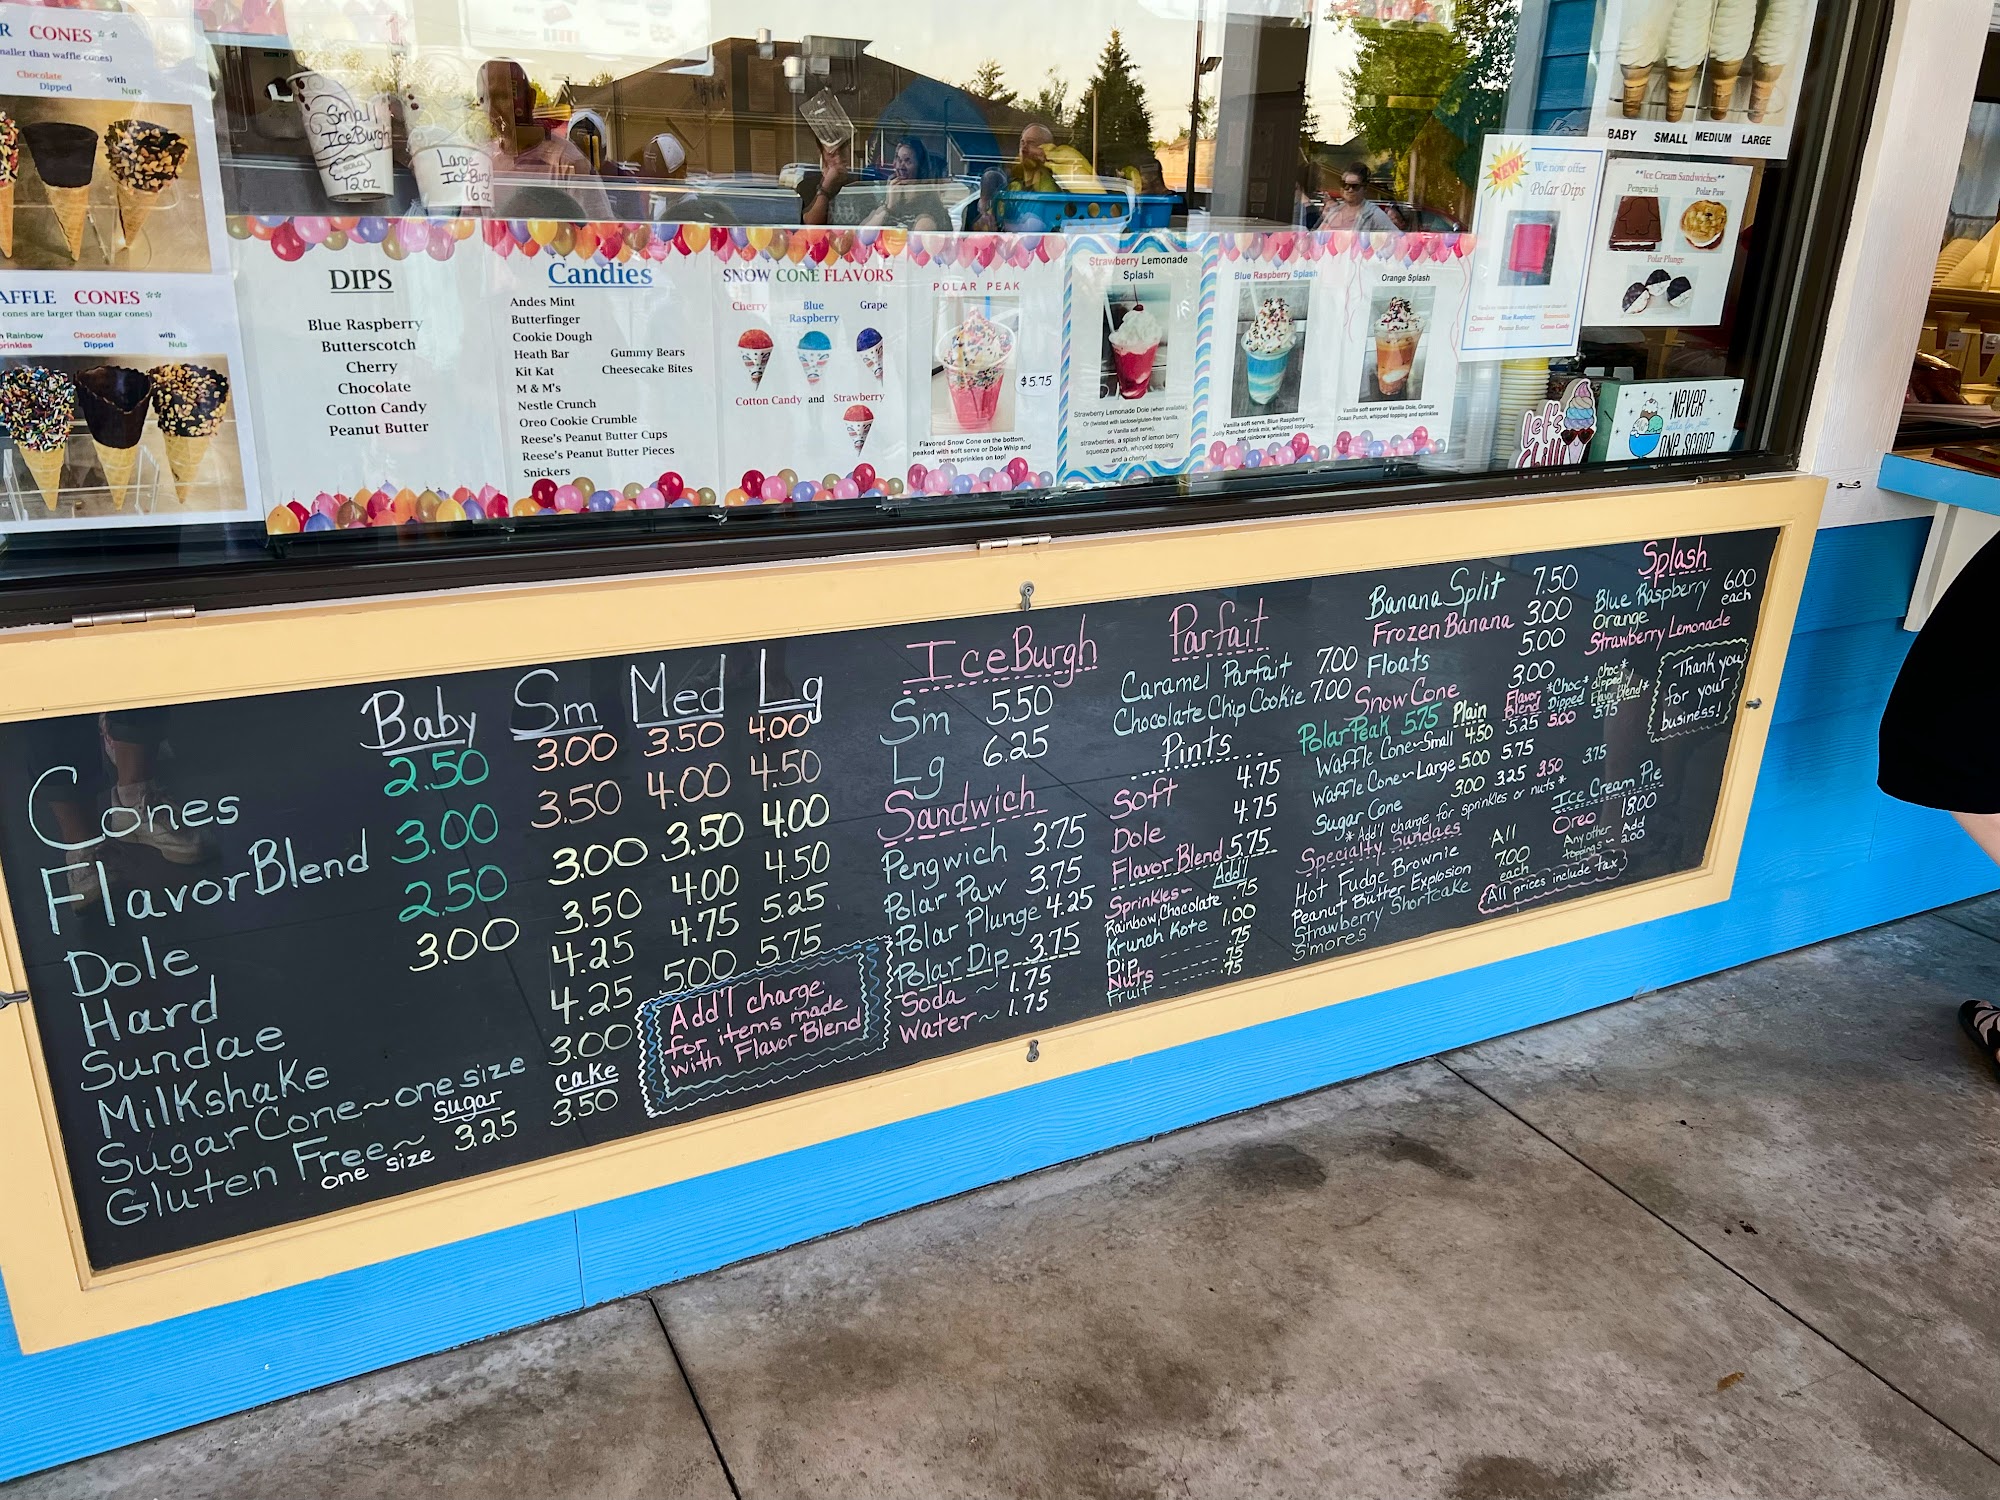 R CONES **
maller than waffle cones)
Chocolate Dipped
with Nuts
AFFLE CONES **
cones are larger than sugar cones)
h Rainbow
prinkles
Chocolate Dipped
with Nuts
Small
IceBurgh
12oz
Large
IceBurg
16oz
DIPS
Blue Raspberry
Butterscotch
Cherry
Chocolate
Cotton Candy
Peanut Butter
Candies
Andes Mint
Butterfinger
Cookie Dough
Heath Bar
Kit Kat
M & M's
Nestle Crunch
Oreo Cookie Crumble
Reese's Peanut Butter Cups
Reese's Peanut Butter Pieces
Snickers
Gummy Bears
Cheesecake Bites
SNOW CONE FLAVORS
Cherry
Blue Raspberry
Grape
Cotton Candy and Strawberry
POLAR PEAK
$5.75
Flavored Snow Cone on the bottom,
peaked with soft serve or Dole Whip and
some sprinkles on top!
Strawberry Lemonade
Splash
Strawberry Lemonade Dole (when available)
Or (twisted with lactose/gluten-free Vanilla,
or Vanilla soft serve),
strawberries, a splash of lemon berry
squeeze punch, whipped topping
and a cherry!
Blue Raspberry Splash
Vanilla soft serve, Blue Raspberry
Jolly Rancher drink mix, whipped topping,
and rainbow sprinkles
Orange Splash
Vanilla soft serve or Vanilla Dole, Orange
Ocean Punch, whipped topping and sprinkles
NEW!
We now offer
Polar Dips
Chocolate Blue Raspberry Butterscotch
Cherry Peanut Butter Cotton Candy
BABY SMALL MEDIUM LARGE
**Ice Cream Sandwiches**
Pengwich
Polar Paw
Polar Plunge
Let's
Chill
NEVER
ONE SCOOP
Baby Sm Med Lg
Cones 2.50 3.00 3.50 4.00
Flavor Blend 3.00 3.50 4.00 4.50
Dole 2.50 3.00 3.50 4.00
Hard 3.00 3.50 4.00 4.50
Sundae 4.25 4.75 5.25
Milkshake 4.25 5.00 5.75
Sugar Cone~one size 3.00
Gluten Free~ one size
sugar 3.25
cake 3.50
Add'l charge
for items made
with Flavor Blend
IceBurgh
Sm 5.50
Lg 6.25
Sandwich
Pengwich 3.75
Polar Paw 3.75
Polar Plunge 4.25
Polar Dip 3.75
Soda ~ 1.75
Water ~ 1.75
Parfait
Caramel Parfait 7.00
Chocolate Chip Cookie 7.00
Pints
Soft 4.75
Dole 4.75
Flavor Blend 5.75
Add'l
Sprinkles~
Rainbow, Chocolate .75
Krunch Kote 1.00
Dip .75
Nuts .75
Fruit .75
Banana Split 7.50
Frozen Banana 3.00
Floats 5.00
Snow Cone 3.00
Polar Peak 5.75
Plain
Flavor Blend
*Choc* Dipped
Choc* dipped/ Flavor Blend*
Waffle Cone~Small 4.50 5.25 5.00 5.75
Waffle Cone~Large 5.00 5.75
Sugar Cone 3.00 3.25 3.50 3.75
*Add'l charge for sprinkles or nuts*
Specialty Sundaes
Hot Fudge Brownie
Peanut Butter Explosion
Strawberry Shortcake
S'mores
All
7.00
each
Splash
Blue Raspberry 6.00
Orange each
Strawberry Lemonade
Thank you
for your
business!
Ice Cream Pie
Oreo 18.00
Any other toppings ~ Add 2.00
All prices include tax